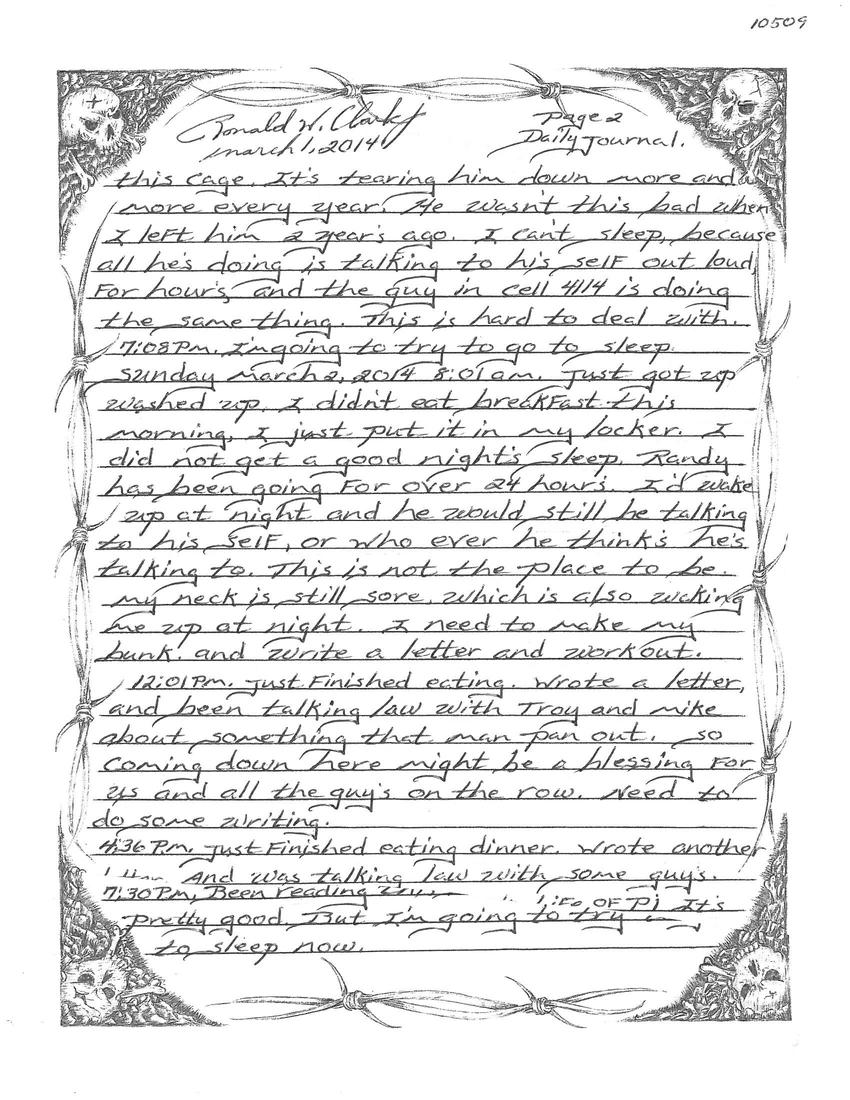 10509
Ronald W. Clark Jr
Page 2
march 1, 2014
Daily Journal.
this cage. It's tearing him down more and
more every year. He wasn't this bad when
I left him 2 year's ago. I can't sleep, because
all he's doing is talking to his self out loud,
For hour's, and the guy in cell 4114 is doing
the same thing. This is hard to deal with.
7:08 Pm. I'm going to try to go to sleep.
Sunday march 2, 2014 8:01 am. Just got up
washed up. I didn't eat breakFast this
morning, I just put it in my locker. I
did not get a good night's sleep. Randy
has been going For over 24 hour's. I'd wake
up at night and he would still be talking
to his selF, or who ever he think's he's
talking to. This is not the place to be.
my neck is still sore. which is also waking
me up at night. I need to make my
bunk. and write a letter and workout.
12:01 Pm. Just Finished eating. Wrote a letter,
and been talking law with Troy and mike
about something that man pan out. so
coming down here might be a blessing For
us and all the guy's on the row. Need to
do some writing.
4:36 P.m. Just Finished eating dinner. Wrote another
And was talking law with some guy's.
7:30 Pm, Been reading
liFe OF Pi It's
pretty good. But I'm going to try
to sleep now.